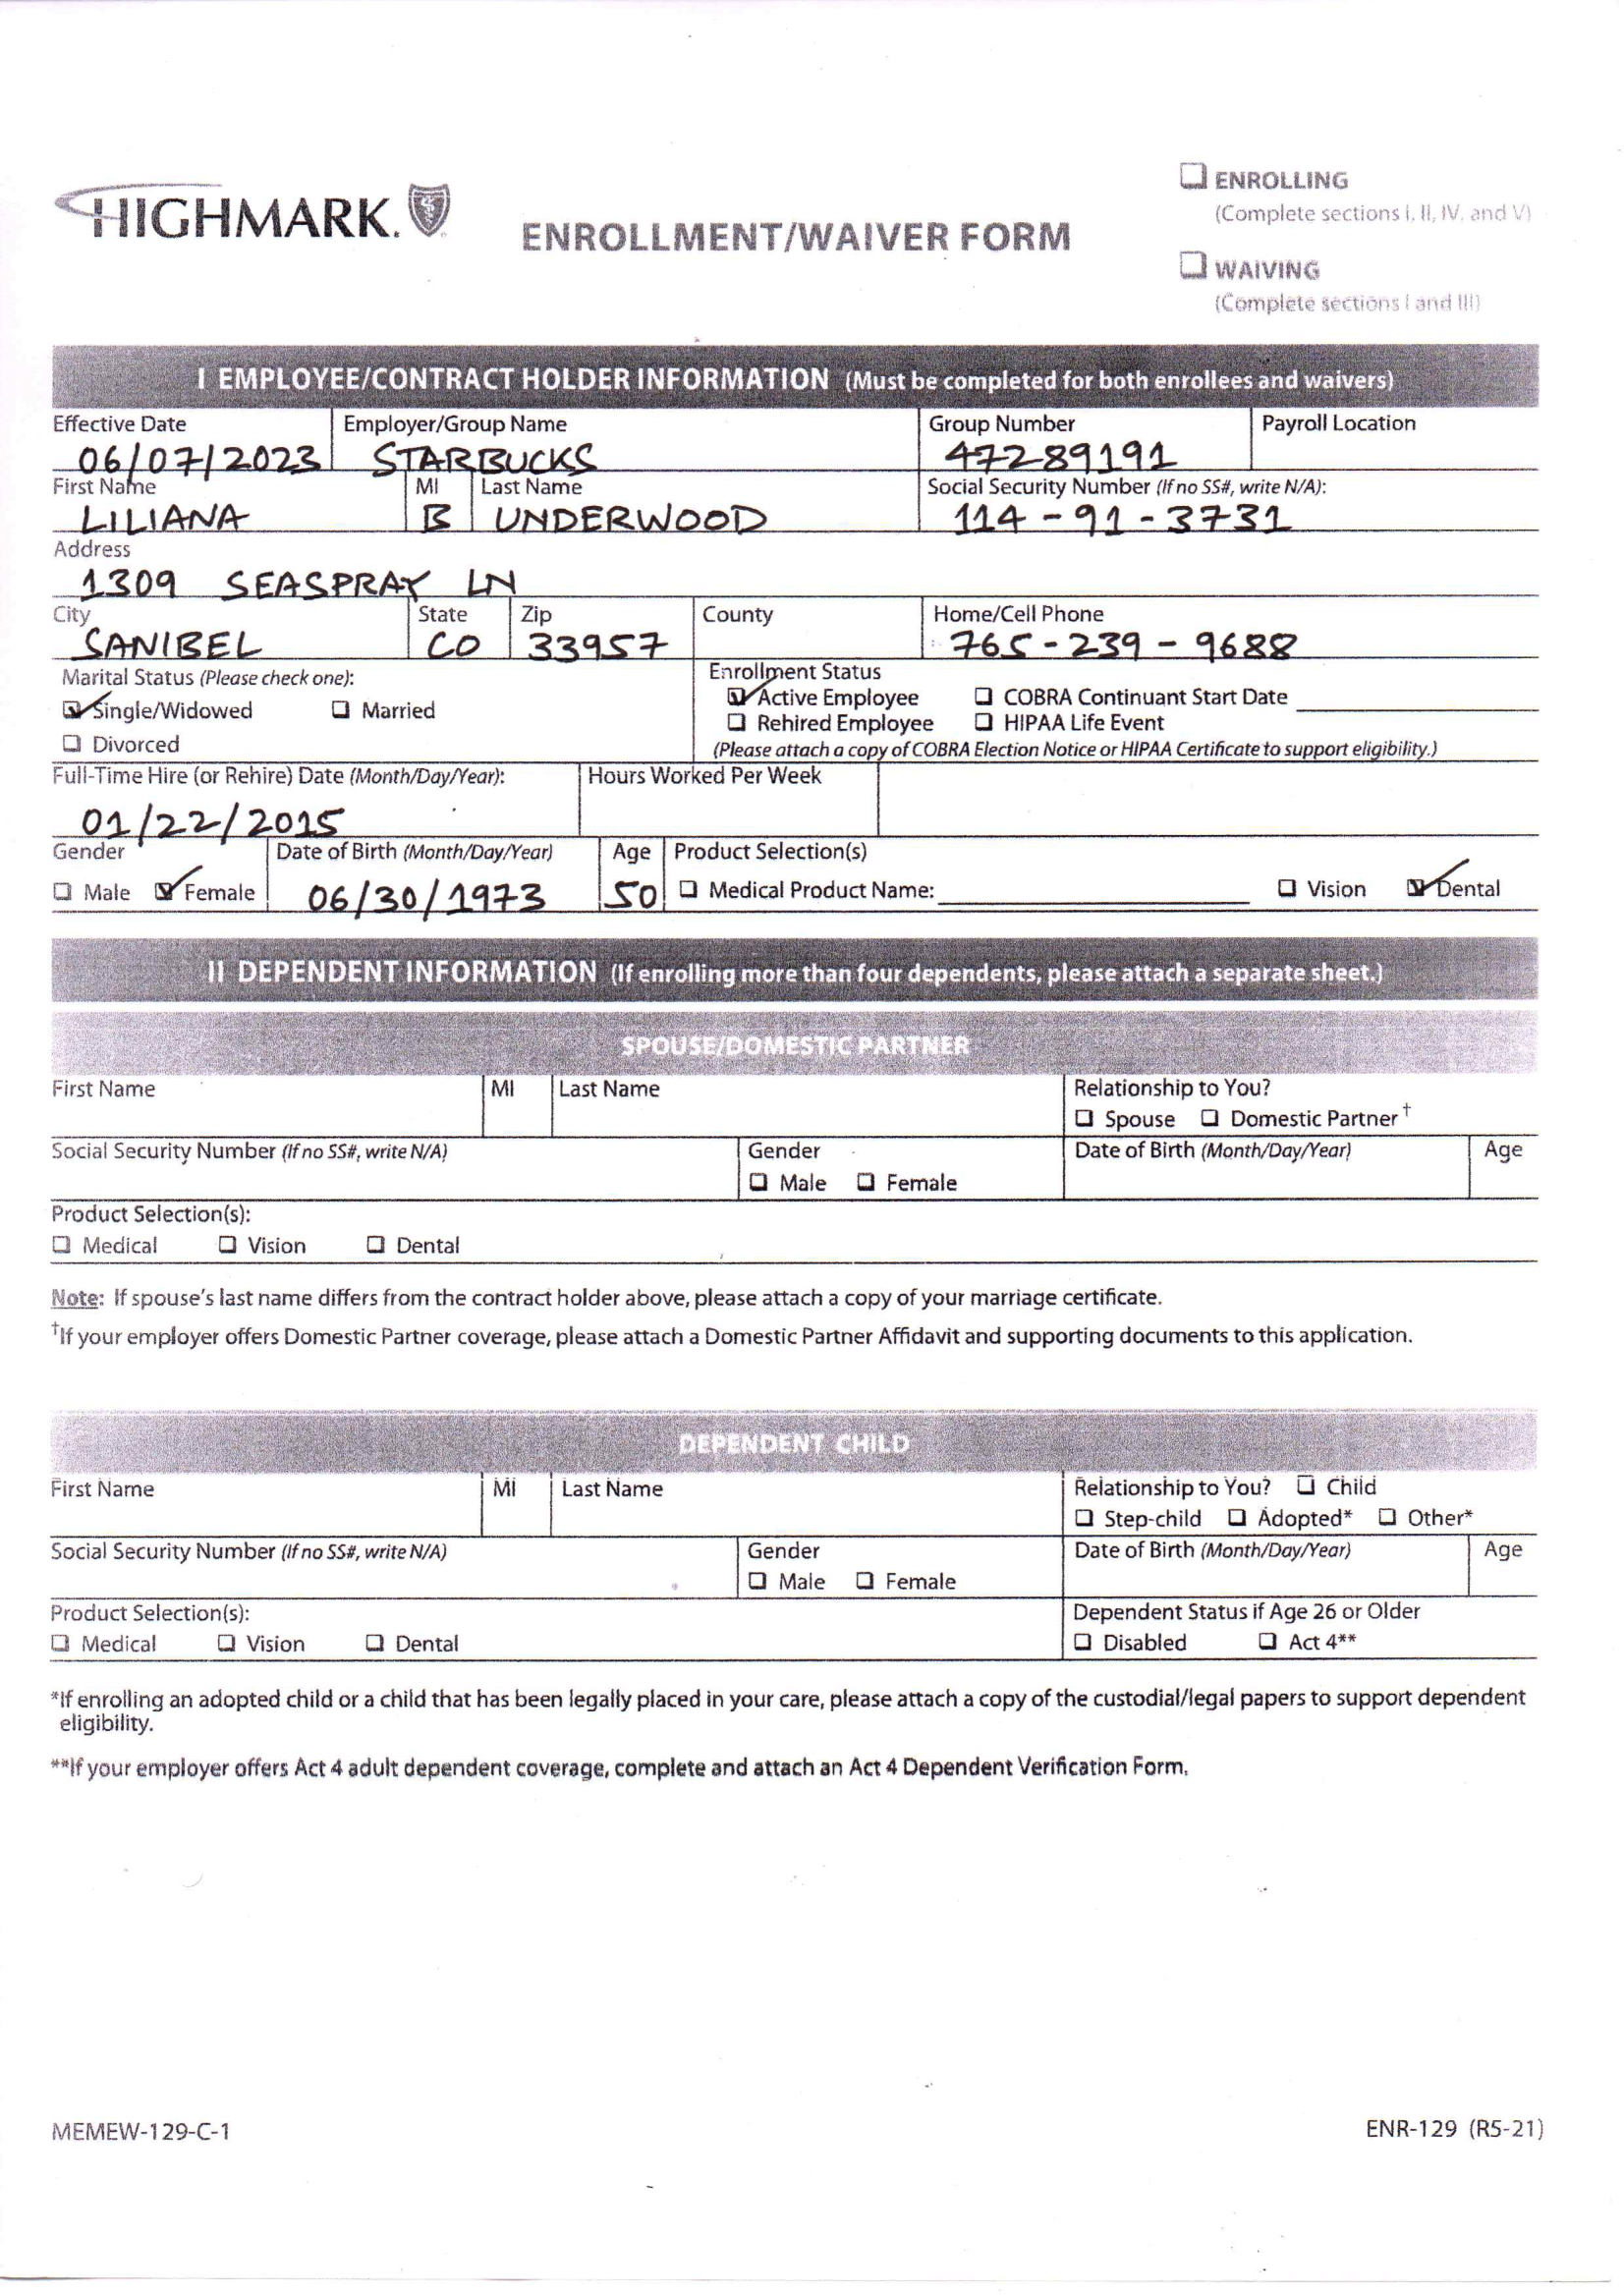 HIGHMARK.
ENROLLMENT/WAIVER FORM
❑ ENROLLING
(Complete sections I, II, IV, and V)
❑ WAIVING
(Complete sections I and III)
I EMPLOYEE/CONTRACT HOLDER INFORMATION (Must be completed for both enrollees and waivers)
Effective Date Employer/Group Name Group Number Payroll Location
06/07/2023 STARBUCKS 47289191
First Name MI Last Name Social Security Number (If no SS#, write N/A):
LILIANA B UNDERWOOD 114-91-3731
Address
1309 SEASPRAY LN
City State Zip County Home/Cell Phone
SANIBEL CO 33957 765-239-9688
Marital Status (Please check one): Enrollment Status
☑ Single/Widowed ❑ Married ☑ Active Employee ❑ COBRA Continuant Start Date
❑ Rehired Employee ❑ HIPAA Life Event
❑ Divorced (Please attach a copy of COBRA Election Notice or HIPAA Certificate to support eligibility.)
Full-Time Hire (or Rehire) Date (Month/Day/Year): Hours Worked Per Week
01/22/2015
Gender Date of Birth (Month/Day/Year) Age Product Selection(s)
❑ Male ☑ Female 06/30/1973 50 ❑ Medical Product Name: ❑ Vision ☑ Dental
II DEPENDENT INFORMATION (If enrolling more than four dependents, please attach a separate sheet.)
SPOUSE/DOMESTIC PARTNER
First Name MI Last Name Relationship to You?
❑ Spouse ❑ Domestic Partner†
Social Security Number (If no SS#, write N/A) Gender Date of Birth (Month/Day/Year) Age
❑ Male ❑ Female
Product Selection(s):
❑ Medical ❑ Vision ❑ Dental
Note: If spouse's last name differs from the contract holder above, please attach a copy of your marriage certificate.
†If your employer offers Domestic Partner coverage, please attach a Domestic Partner Affidavit and supporting documents to this application.
DEPENDENT CHILD
First Name MI Last Name Relationship to You? ❑ Child
❑ Step-child ❑ Adopted* ❑ Other*
Social Security Number (If no SS#, write N/A) Gender Date of Birth (Month/Day/Year) Age
❑ Male ❑ Female
Product Selection(s): Dependent Status if Age 26 or Older
❑ Medical ❑ Vision ❑ Dental ❑ Disabled ❑ Act 4**
*If enrolling an adopted child or a child that has been legally placed in your care, please attach a copy of the custodial/legal papers to support dependent
eligibility.
**If your employer offers Act 4 adult dependent coverage, complete and attach an Act 4 Dependent Verification Form.
MEMEW-129-C-1 ENR-129 (R5-21)